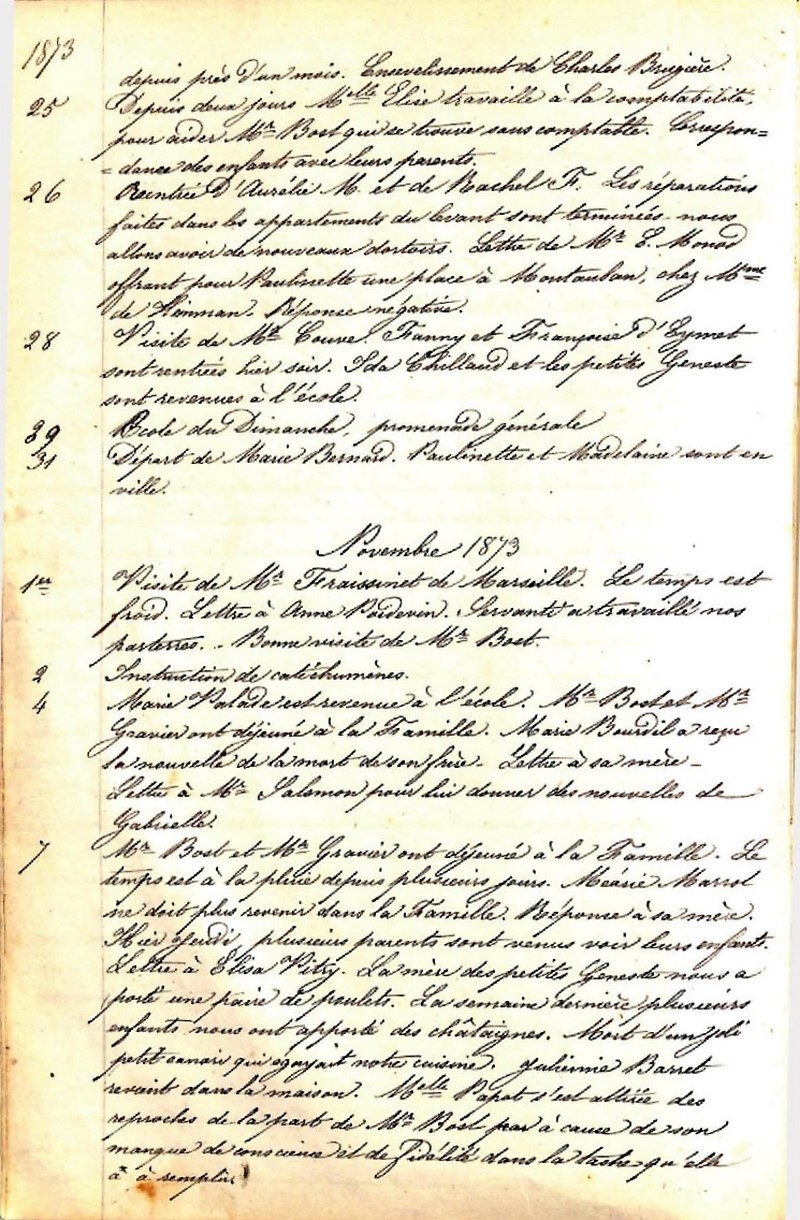 1873
depuis près d'un mois. Ensevelissement de Charles Brugière.
25 Depuis deux jours Melle Elise travaille à la comptabilité,
pour aider Mr Bost qui se trouve sans comptable. Correspon=
=dance des enfants avec leurs parents.
26 Rentrée d'Aurélie M. et de Rachel F. Les réparations
faites dans les appartements du levant sont terminées - nous
allons avoir de nouveaux dortoirs. Lettre de Mr E. Monod
offrant pour Paulinette une place à Montauban, chez Mme
de Réponse négative.
28 Visite de Mr Couve. Fanny et Françoise d'Eymet
sont rentrées hier soir. Ida Chillaud et les petites Geneste
sont revenues à l'école.
29 Ecole du Dimanche, promenade générale
31 Départ de Marie Bernard. Paulinette et Madelaine sont en
ville.
Novembre 1873
1er Visite de Mr Fraissinet de Marseille. Le temps est
froid. Lettre à Anne Poidevin. Servante a travaillé nos
parterres. - Bonne visite de Mr Bost.
2 Instruction de catéchumènes.
4 Marie Valade est revenue à l'école. Mr Bost et Mr
Gravier ont déjeuné à la Famille. Marie Bourdil a reçu
la nouvelle de la mort de son frère - Lettre à sa mère -
Lettre à Mr Salomon pour lui donner des nouvelles de
Gabrielle.
7 Mr Bost et Mr Gravier ont déjeuné à la Famille. Le
temps est à la pluie depuis plusieurs jours. Marrot
ne doit plus revenir dans la Famille. Réponse à sa mère.
Hier Jeudi plusieurs parents sont venus voir leurs enfants.
Lettre à Elisa Vitry. La mère des petites Geneste nous a
porté une paire de poulets. La semaine dernière plusieurs
enfants nous ont apporté des châtaignes. Mort d'un joli
petit canari qui égayait notre cuisine. Julienne Barret
revient dans la maison. Melle Papot s'est attirée des
reproches de la part de Mr Bost par à cause de son
manque de conscience et de fidélité dans la tache qu'elle
a à remplir